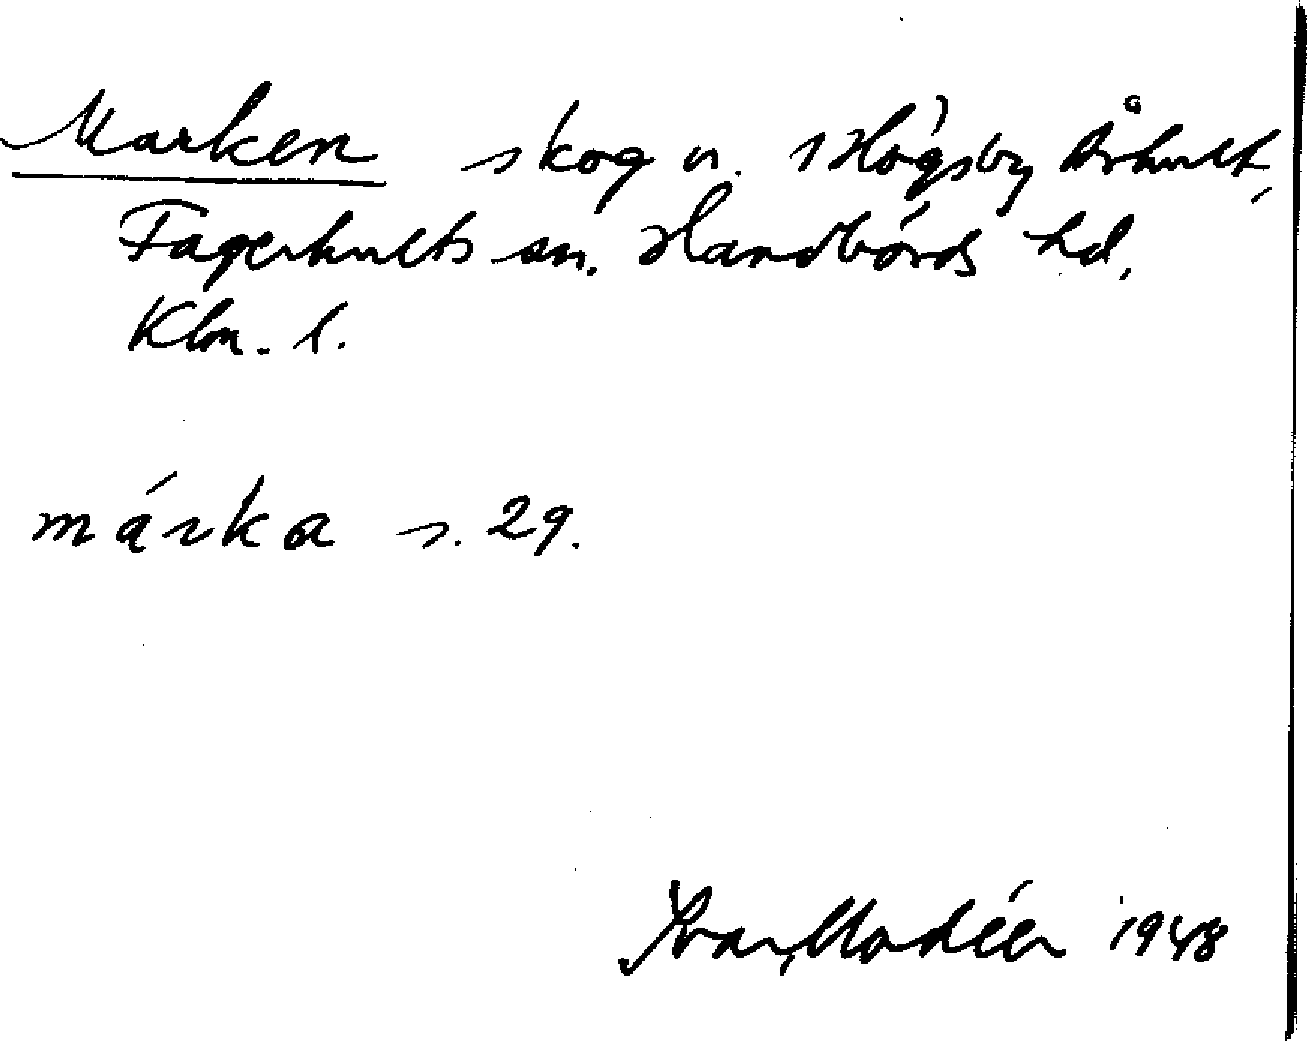 Marken skog n. i Högsby Århult,
Fagerhults sn. Handbörds hd,
Klm. l.
márka s. 29.
Ivar Modéer 1948